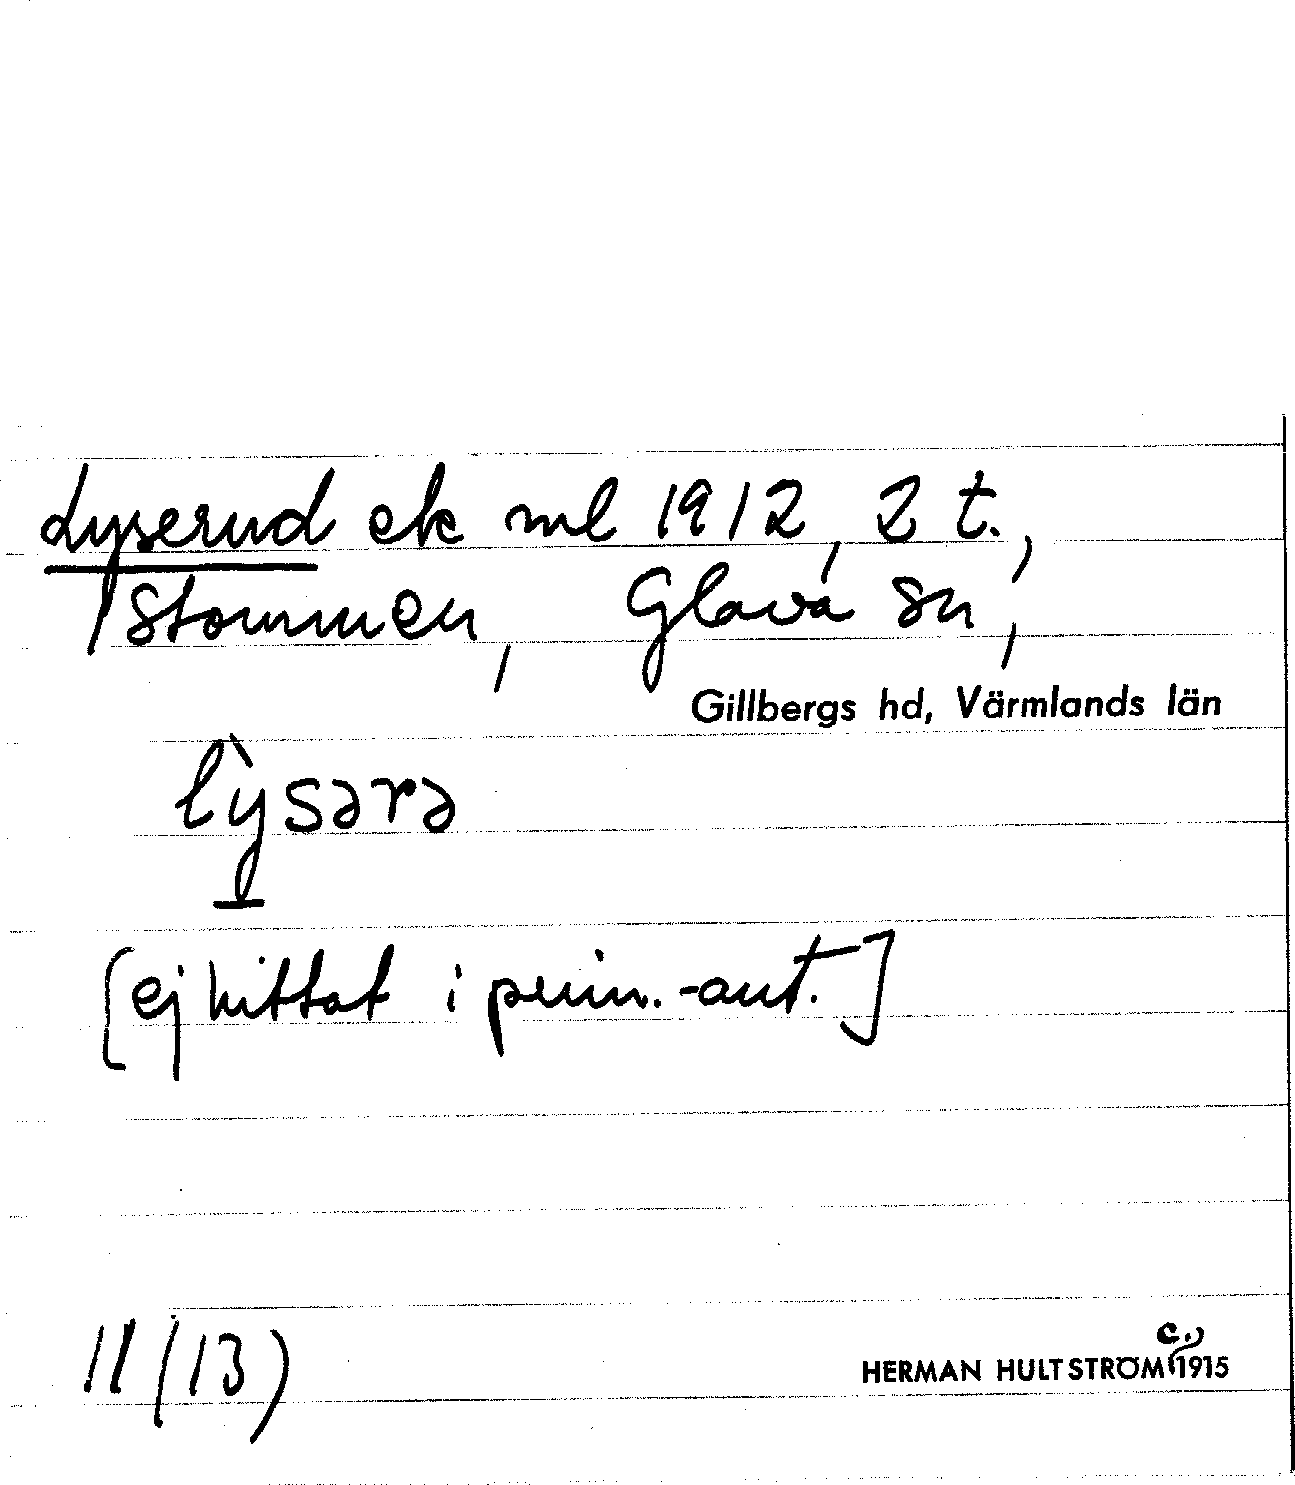 Lyserud ek ml 1912, 2 t.,
Stommen, Glava sn,
Gillbergs hd, Värmlands län
lỳsərə
[ej hittat i prim.-ant.]
11 (13)
c.
HERMAN HULTSTRÖM 1915